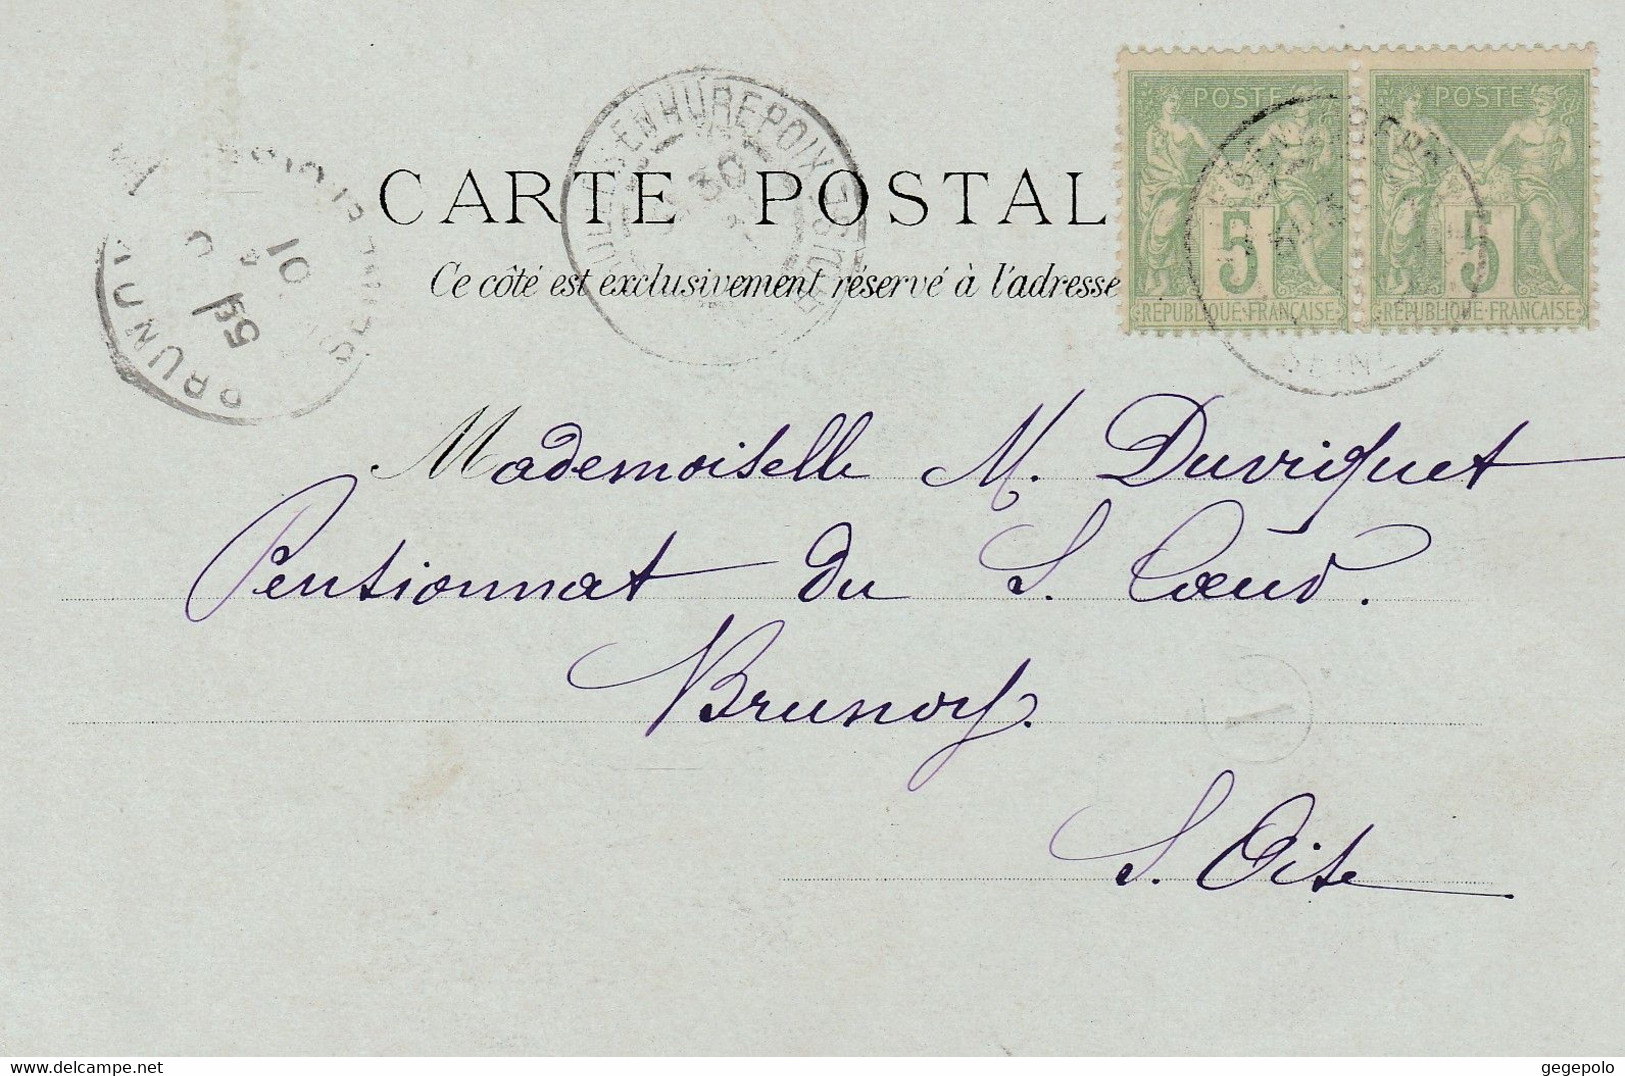 CARTE POSTALE
Ce côté est exclusivement réservé à l'adresse
POSTE
5
RÉPUBLIQUE FRANÇAISE
POSTE
5
RÉPUBLIQUE FRANÇAISE
EN HUREPOIX
30
BRUNOY
10
Mademoiselle M. Duvriguet
Pensionnat du S. Cœur.
Brunoy.
S. Oise
delcampe.net
gegepolo